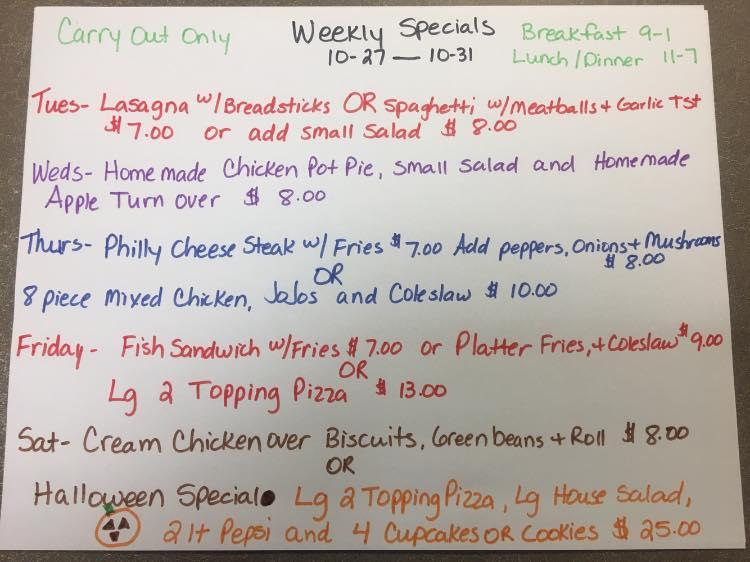 Carry Out Only
Weekly Specials
10-27 — 10-31
Breakfast 9-1
Lunch/Dinner 11-7
Tues- Lasagna w/Breadsticks OR Spaghetti w/Meatballs + Garlic Tst
$7.00 or add small salad $8.00
Weds- Homemade Chicken Pot Pie, small salad and Homemade
Apple Turn over $8.00
Thurs- Philly Cheese Steak w/ Fries $7.00 Add peppers, Onions + Mushrooms
$8.00
OR
8 piece mixed Chicken, JoJos and Coleslaw $10.00
Friday- Fish Sandwich w/Fries $7.00 or Platter Fries, + Coleslaw $9.00
OR
Lg 2 Topping Pizza $13.00
Sat- Cream Chicken over Biscuits, Green beans + Roll $8.00
OR
Halloween Special • Lg 2 Topping Pizza, Lg House Salad,
2 lt Pepsi and 4 Cupcakes OR Cookies $25.00